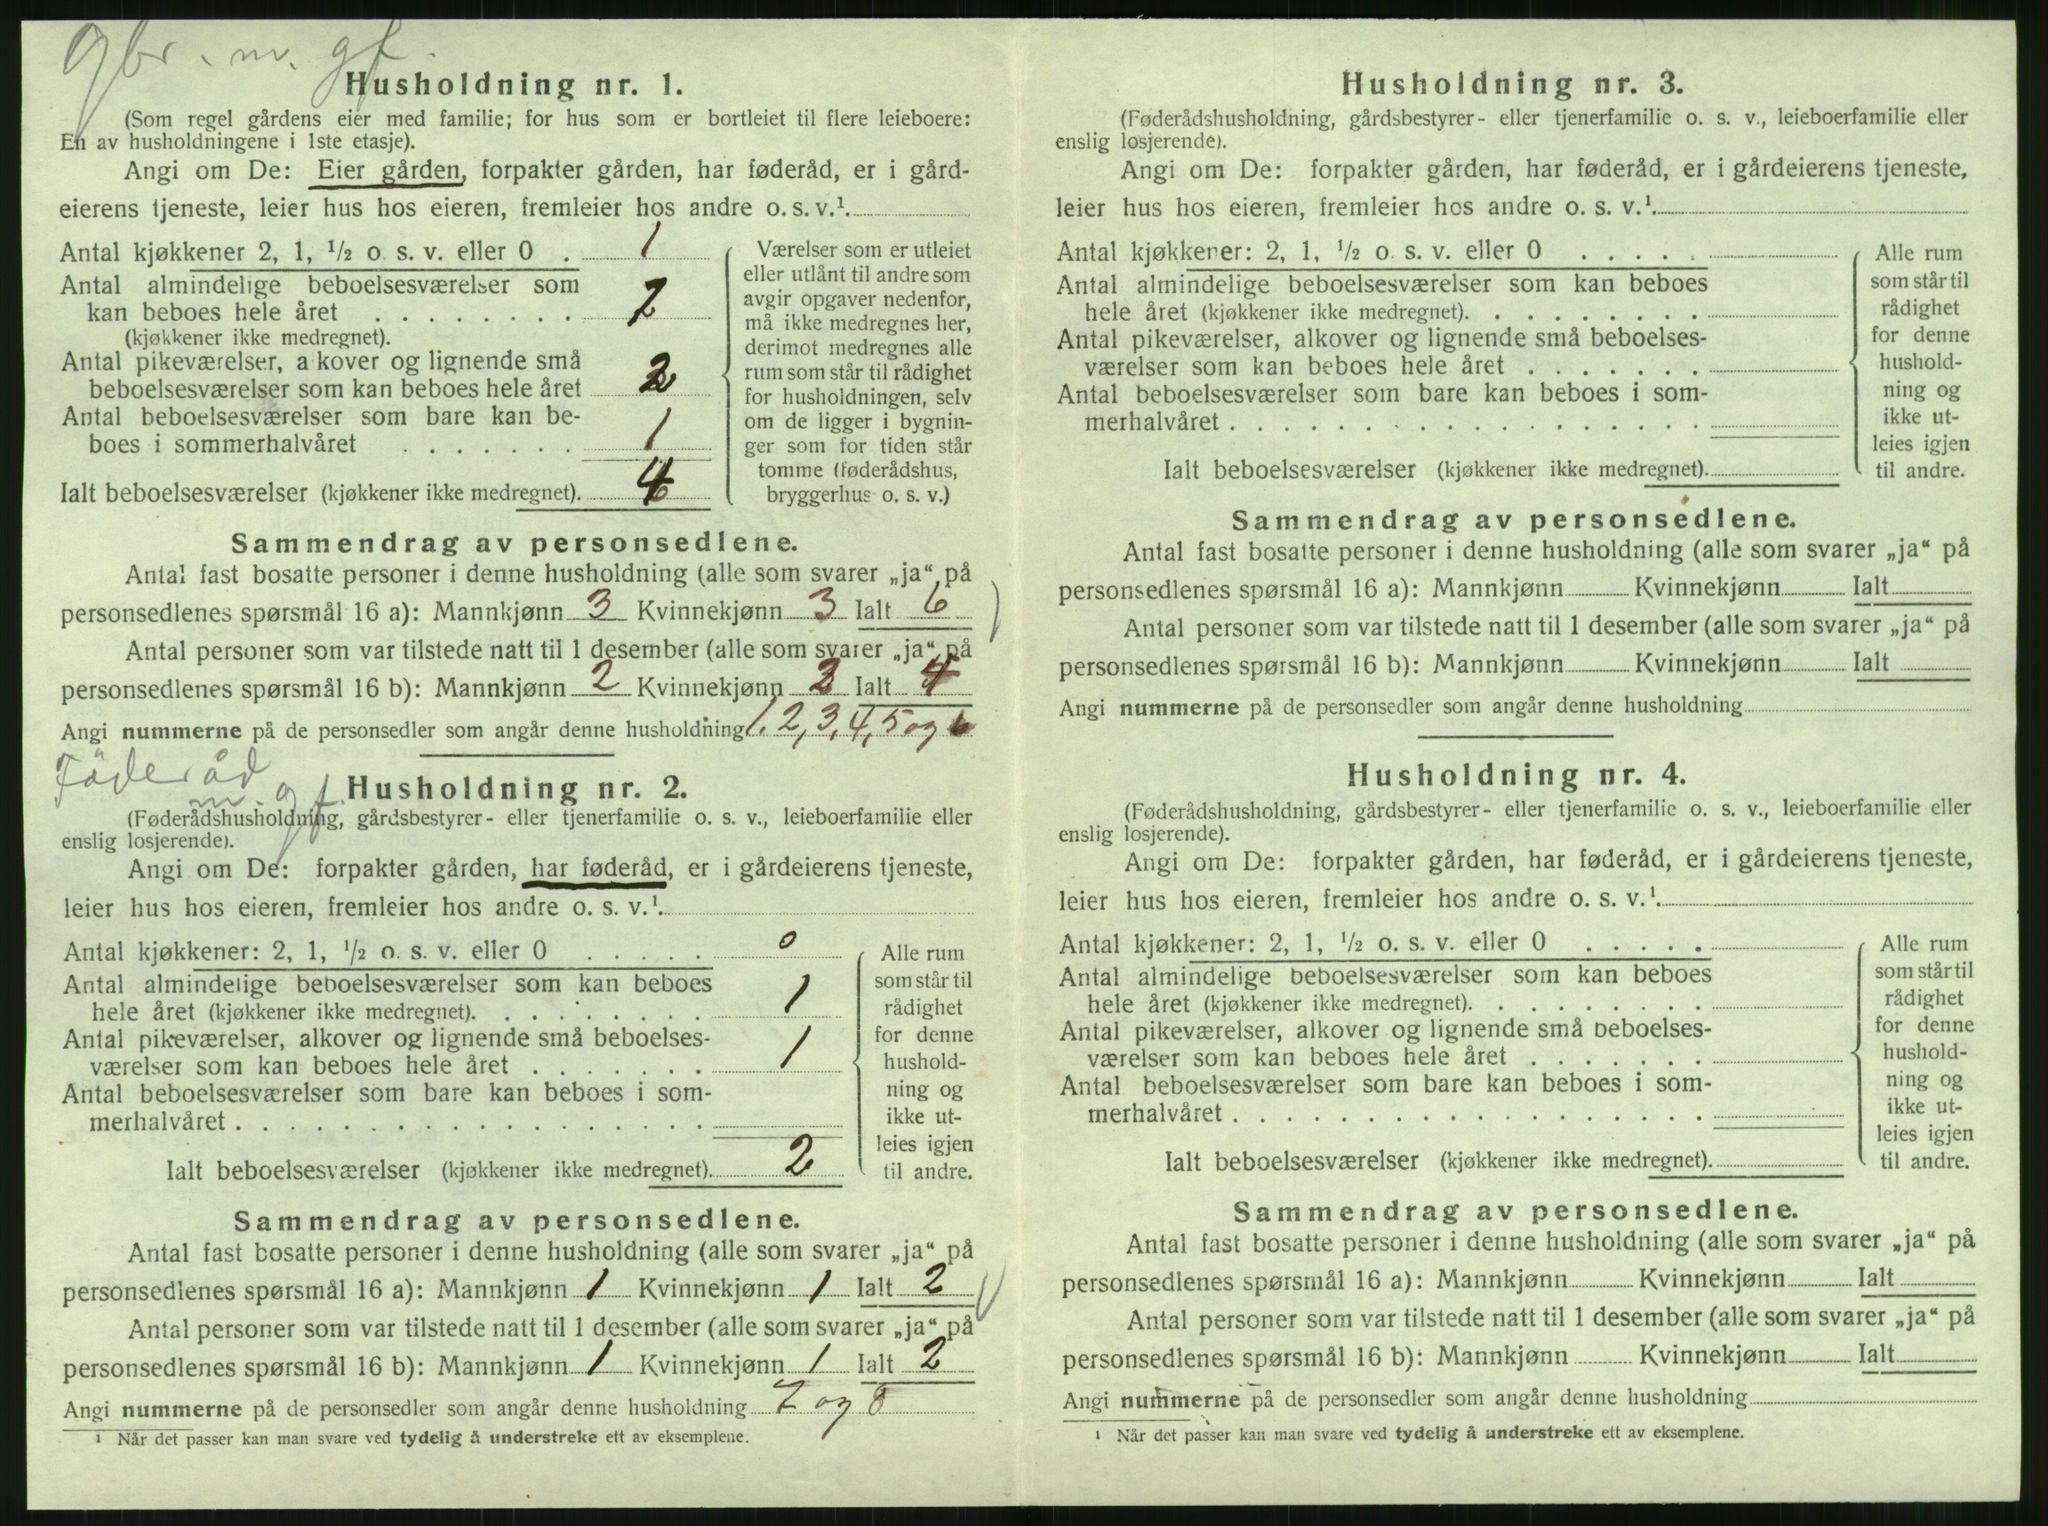 gbr. m. gf.
Husholdning nr. 1.
(Som regel gårdens eier med familie; for hus som er bortleiet til flere leieboere:
En av husholdningene i 1ste etasje).
Angi om De: Eier gården, forpakter gården, har føderåd, er i gård-
eierens tjeneste, leier hus hos eieren, fremleier hos andre o. s. v.¹.
Antal kjøkkener 2, 1, ½ o. s. v. eller 0 . 1
Antal almindelige beboelsesværelser som
kan beboes hele året . . . . . . . .
(kjøkkener ikke medregnet).
Antal pikeværelser, a kover og lignende små
beboelsesværelser som kan beboes hele året 2
Antal beboelsesværelser som bare kan be-
boes i sommerhalvåret . . . . . . . 1
Ialt beboelsesværelser (kjøkkener ikke medregnet).
Værelser som er utleiet
eller utlånt til andre som
avgir opgaver nedenfor,
må ikke medregnes her,
derimot medregnes alle
rum som står til rådighet
for husholdningen, selv
om de ligger i bygnin-
ger som for tiden står
tomme (føderådshus,
bryggerhus o. s. v.)
Sammendrag av personsedlene.
Antal fast bosatte personer i denne husholdning (alle som svarer „ja“ på
personsedlenes spørsmål 16 a): Mannkjønn 3 Kvinnekjønn 3 Ialt 6
Antal personer som var tilstede natt til 1 desember (alle som svarer „ja“ på
personsedlenes spørsmål 16 b): Mannkjønn 2 Kvinnekjønn Ialt
Angi nummerne på de personsedler som angår denne husholdning 1, 2, 3, 4, 5 og 6
Föderåd
m. gf.
Husholdning nr. 2.
(Føderådshusholdning, gårdsbestyrer- eller tjenerfamilie o. s. v., leieboerfamilie eller
enslig losjerende).
Angi om De: forpakter gården, har føderåd, er i gårdeierens tjeneste,
leier hus hos eieren, fremleier hos andre o. s. v.¹.
Antal kjøkkener: 2, 1, ½ o. s. v. eller 0 . . . . . 0
Antal almindelige beboelsesværelser som kan beboes
hele året (kjøkkener ikke medregnet). . . . . . . . . 1
Antal pikeværelser, alkover og lignende små beboelses-
værelser som kan beboes hele året . . . . . . . 1
Antal beboelsesværelser som bare kan beboes i som-
merhalvåret . . . . . . . . . . . . . . . . . .
Ialt beboelsesværelser (kjøkkener ikke medregnet). 2
Alle rum
som står til
rådighet
for denne
hushold-
ning og
ikke ut-
leies igjen
til andre.
Sammendrag av personsedlene.
Antal fast bosatte personer i denne husholdning (alle som svarer „ja“ på
personsedlenes spørsmål 16 a): Mannkjønn 1 Kvinnekjønn 1 Ialt 2
Antal personer som var tilstede natt til 1 desember (alle som svarer „ja“ på
personsedlenes spørsmål 16 b): Mannkjønn 1 Kvinnekjønn 1 Ialt 2
Angi nummerne på de personsedler som angår denne husholdning 7 og 8
¹ Når det passer kan man svare ved tydelig å understreke ett av eksemplene.
Husholdning nr. 3.
(Føderådshusholdning, gårdsbestyrer- eller tjenerfamilie o. s. v., leieboerfamilie eller
enslig losjerende).
Angi om De: forpakter gården, har føderåd, er i gårdeierens tjeneste,
leier hus hos eieren, fremleier hos andre o. s. v.¹.
Antal kjøkkener: 2, 1, ½ o. s. v. eller 0 . . . . .
Antal almindelige beboelsesværelser som kan beboes
hele året (kjøkkener ikke medregnet). . . . . . . . .
Antal pikeværelser, alkover og lignende små beboelses-
værelser som kan beboes hele året . . . . . . .
Antal beboelsesværelser som bare kan beboes i som-
merhalvåret . . . . . . . . . . . . . . . . . .
Ialt beboelsesværelser (kjøkkener ikke medregnet).
Alle rum
som står til
rådighet
for denne
hushold-
ning og
ikke ut-
leies igjen
til andre.
Sammendrag av personsedlene.
Antal fast bosatte personer i denne husholdning (alle som svarer „ja“ på
personsedlenes spørsmål 16 a): Mannkjønn Kvinnekjønn Ialt
Antal personer som var tilstede natt til 1 desember (alle som svarer „ja“ på
personsedlenes spørsmål 16 b): Mannkjønn Kvinnekjønn Ialt
Angi nummerne på de personsedler som angår denne husholdning
Husholdning nr. 4.
(Føderådshusholdning, gårdsbestyrer- eller tjenerfamilie o. s. v., leieboerfamilie eller
enslig losjerende).
Angi om De: forpakter gården, har føderåd, er i gårdeierens tjeneste,
leier hus hos eieren, fremleier hos andre o. s. v.¹.
Antal kjøkkener: 2, 1, ½ o. s. v. eller 0 . . . . .
Antal almindelige beboelsesværelser som kan beboes
hele året (kjøkkener ikke medregnet). . . . . . . . .
Antal pikeværelser, alkover og lignende små beboelses-
værelser som kan beboes hele året . . . . . . .
Antal beboelsesværelser som bare kan beboes i som-
merhalvåret . . . . . . . . . . . . . . . . . .
Ialt beboelsesværelser (kjøkkener ikke medregnet).
Alle rum
som står til
rådighet
for denne
hushold-
ning og
ikke ut-
leies igjen
til andre.
Sammendrag av personsedlene.
Antal fast bosatte personer i denne husholdning (alle som svarer „ja“ på
personsedlenes spørsmål 16 a): Mannkjønn Kvinnekjønn Ialt
Antal personer som var tilstede natt til 1 desember (alle som svarer „ja“ på
personsedlenes spørsmål 16 b): Mannkjønn Kvinnekjønn Ialt
Angi nummerne på de personsedler som angår denne husholdning
¹ Når det passer kan man svare ved tydelig å understreke ett av eksemplene.